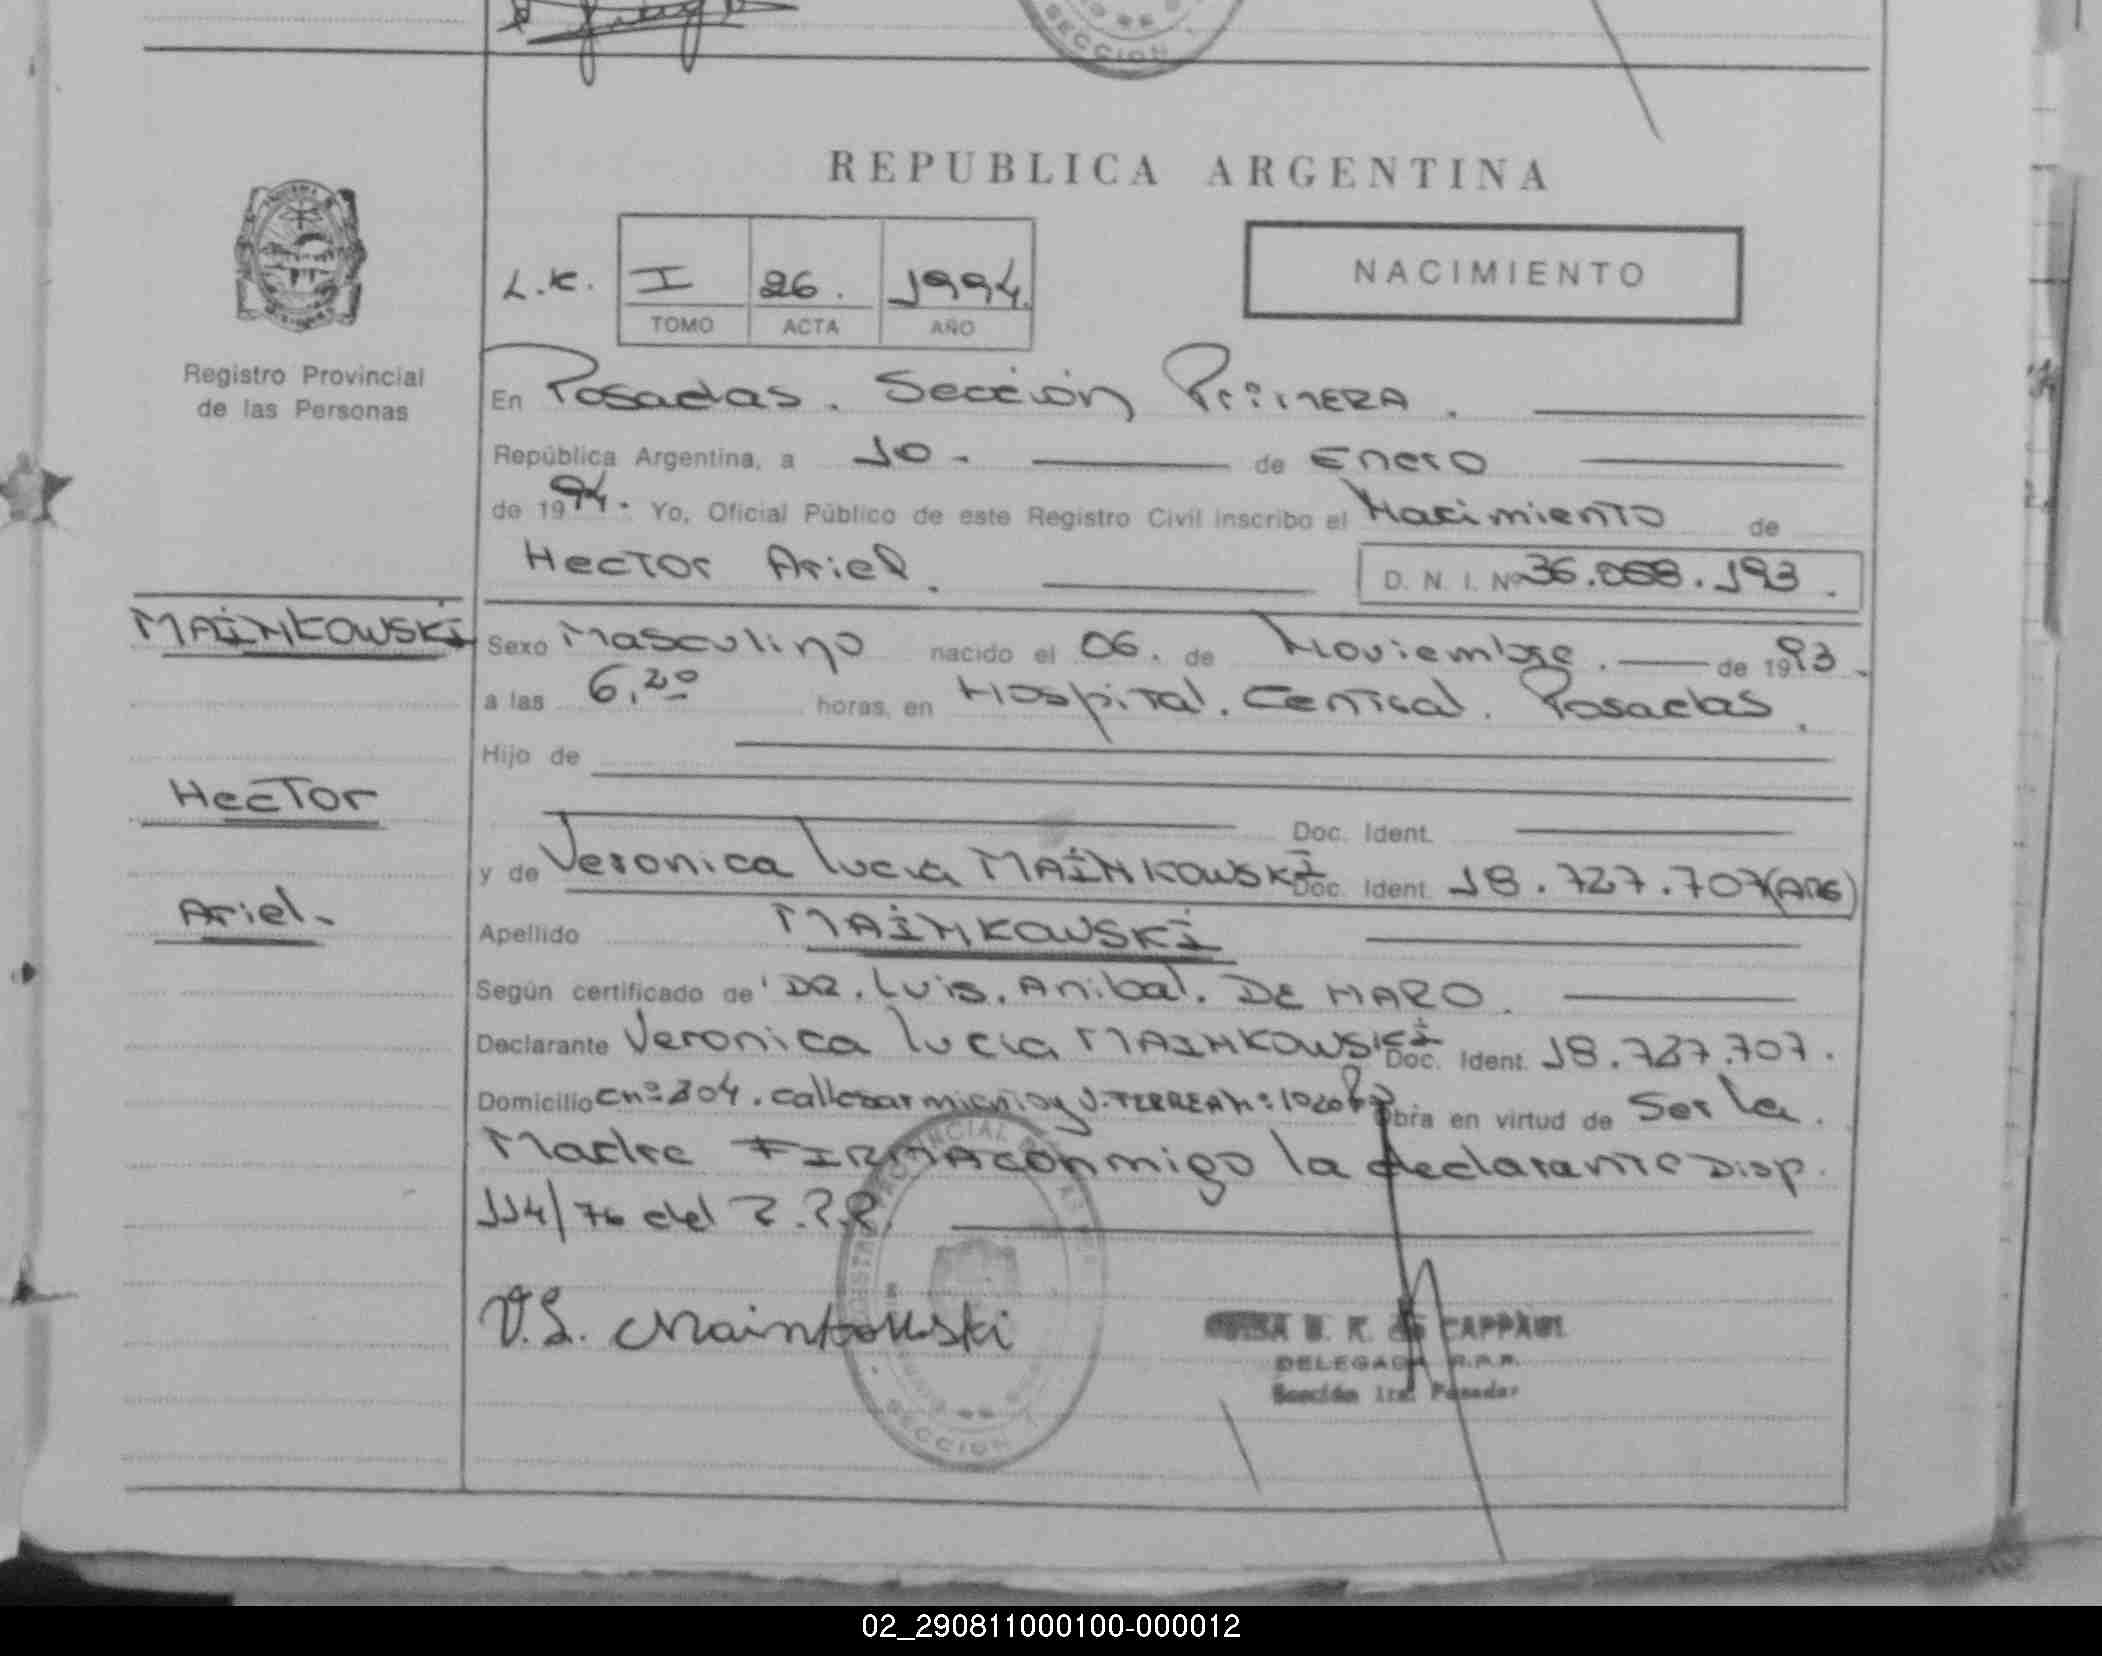 SECCION
REPUBLICA ARGENTINA
NACIMIENTO
L.K. I 26. 1994.
TOMO ACTA AÑO
Registro Provincial
de las Personas
En Posadas. Sección Primera.
República Argentina, a 10. de Enero
de 1994. Yo, Oficial Público de este Registro Civil inscribo el Nacimiento de
Hector Ariel. D. N. I. Nº 36.058.193.
MAINKOWSKI
Hector
Ariel.
Sexo Masculino nacido el 06. de Noviembre. de 1993.
a las 6,20 horas, en Hospital. Central. Posadas.
Hijo de
Doc. Ident.
y de Veronica Lucia MAINKOWSKI Doc. Ident. 18.727.707 (ARG)
Apellido MAINKOWSKI
Según certificado de DR. Luis. Anibal. DE HARO.
Declarante Veronica Lucia MAINKOWSKI Doc. Ident. 18.727.707.
Domicilio Cnº 304. calle Sarmiento y Obra en virtud de Ser la.
Madre FIRMA conmigo la declarante Disp.
114/76 del R.P.P.
V.L. Mainkowski
DELEGADA R.P.P.
Sección 1ra. Posadas
SECCION
02_290811000100-000012